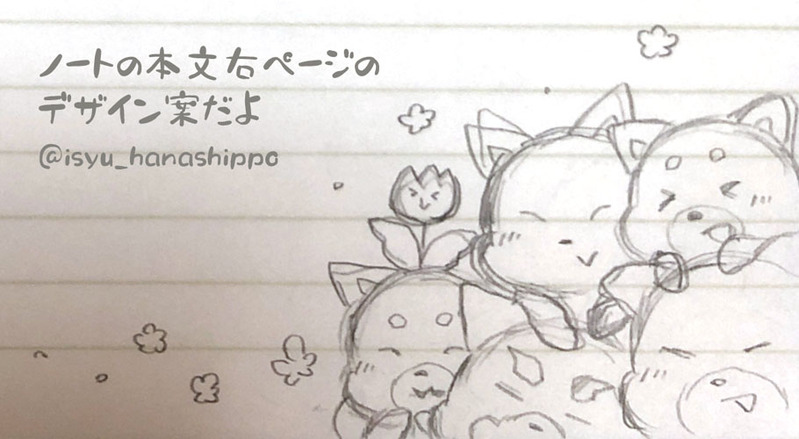 ノートの本文右ページの
デザイン案だよ
@isyu_hanashippo